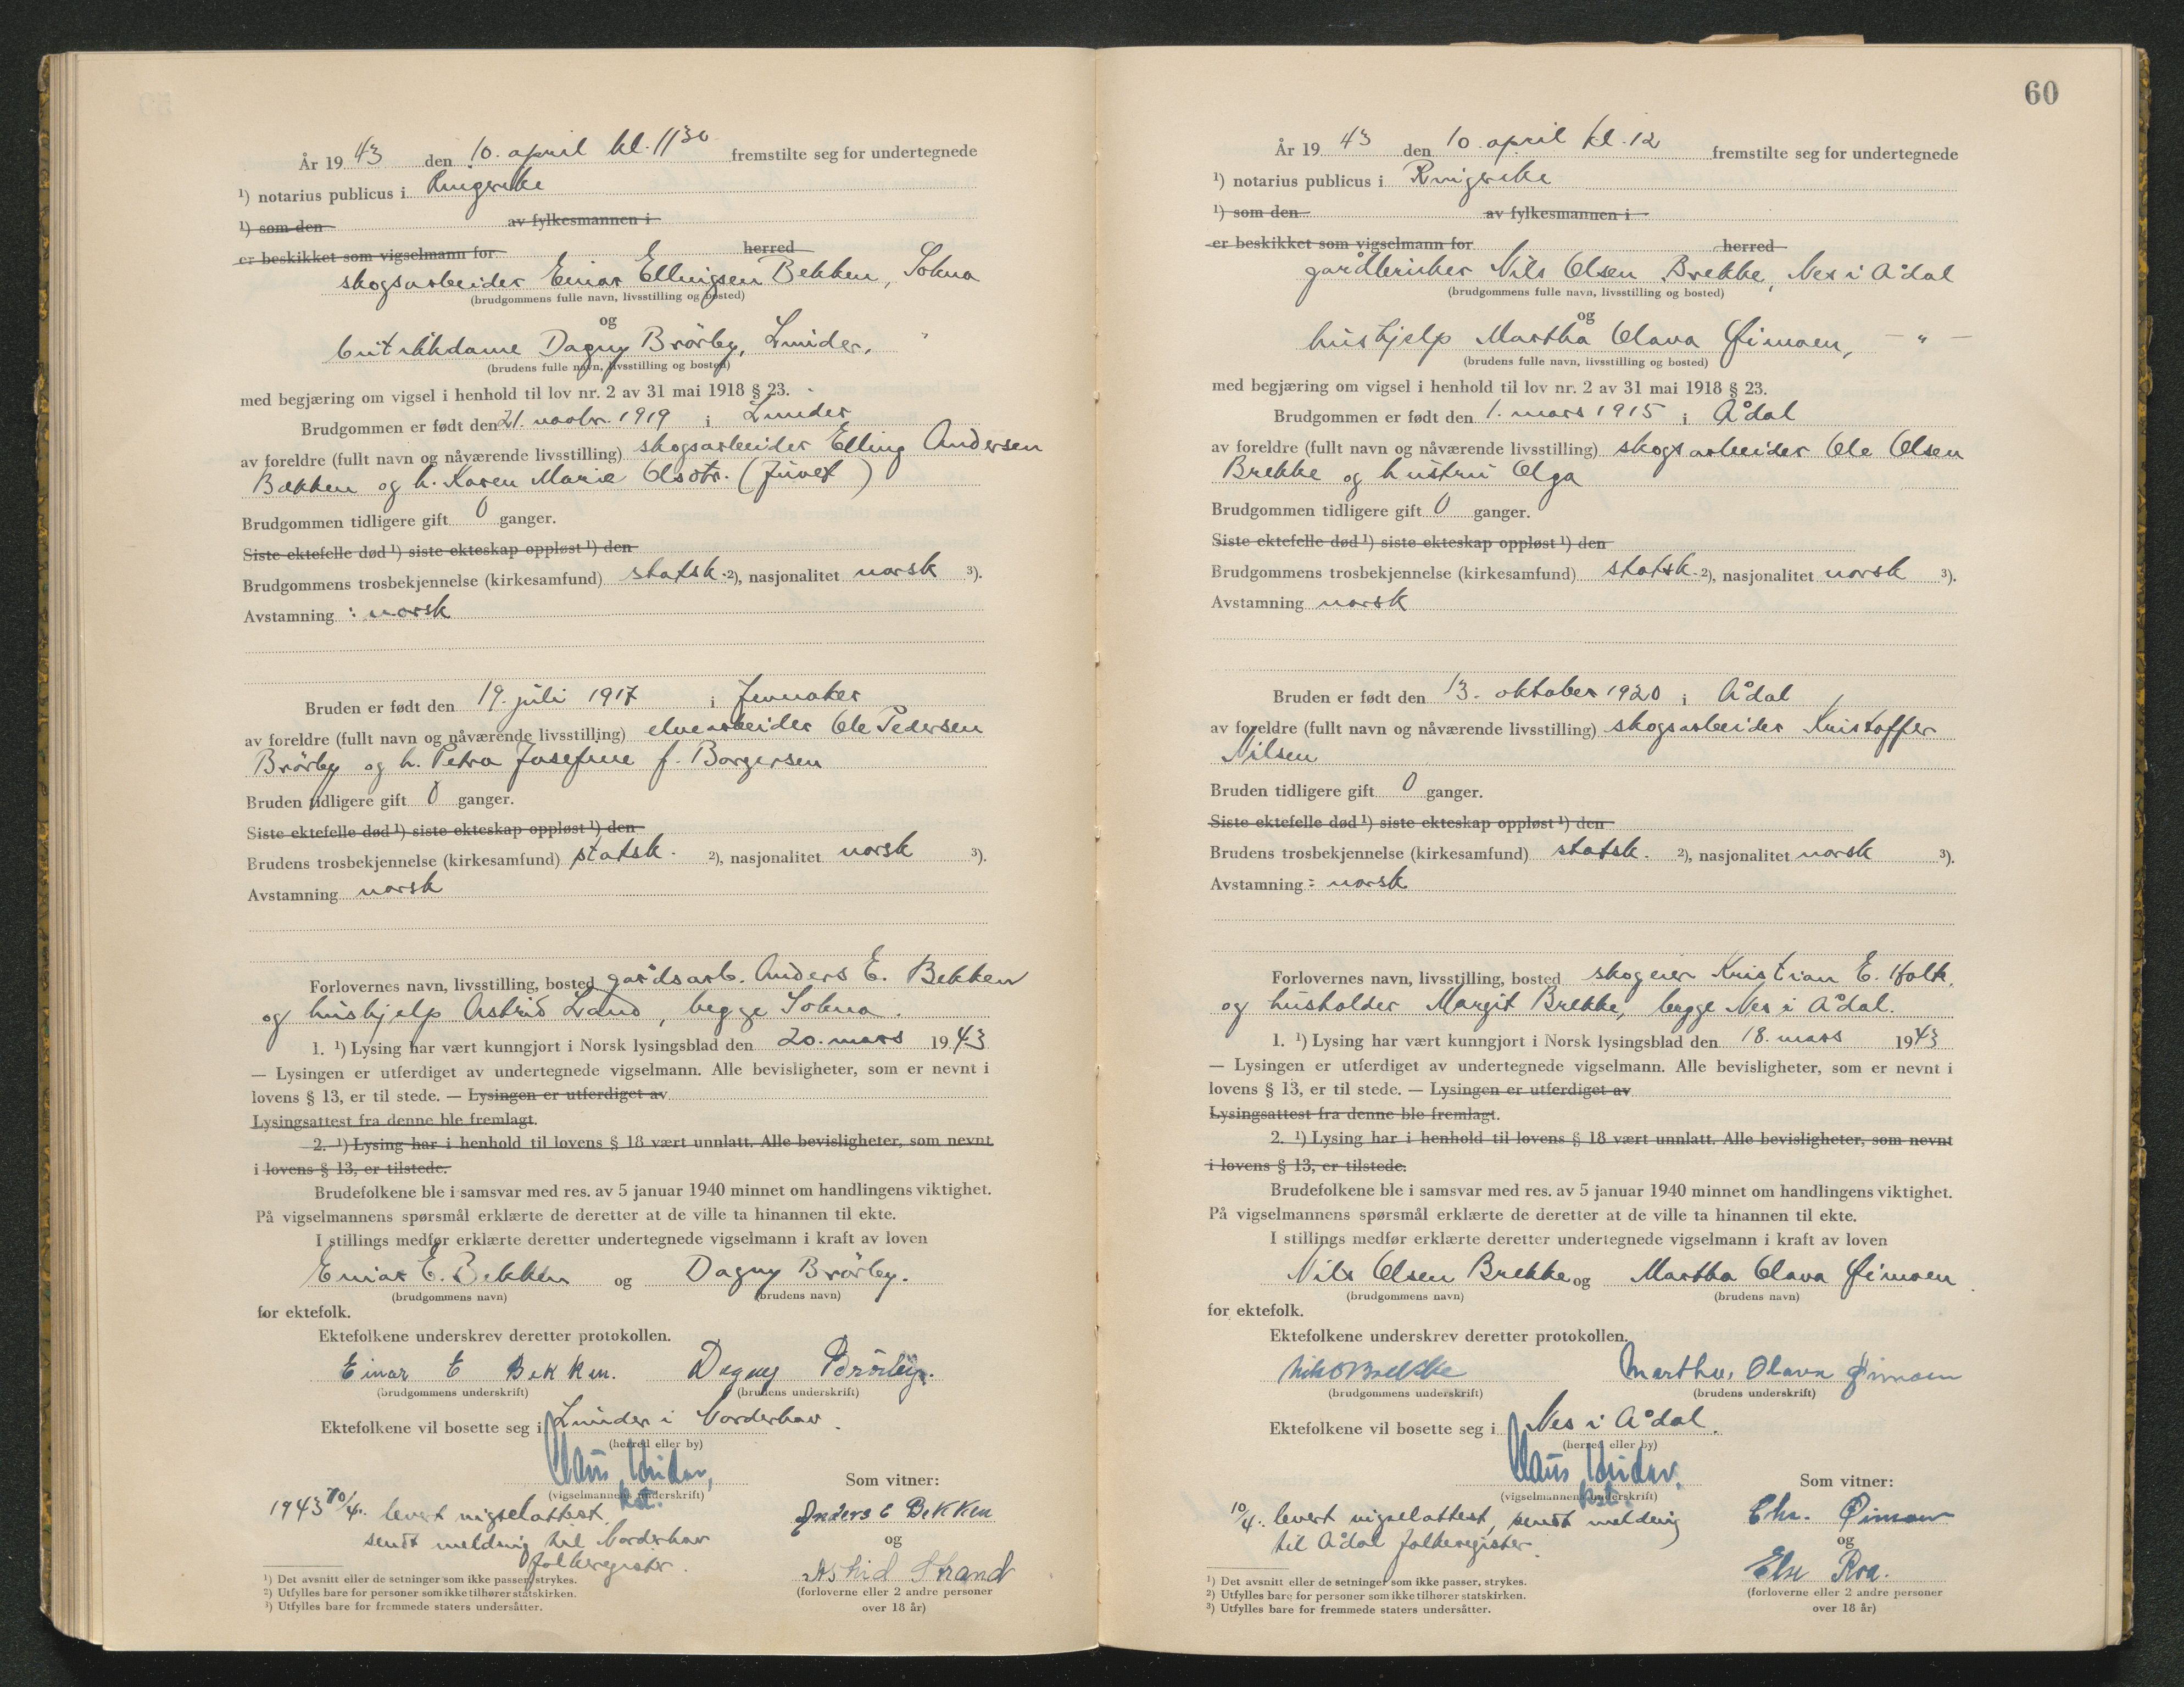 År 19 43 den 10. april kl. 11 30 fremstilte seg for undertegnede
¹) notarius publicus i Ringerike
¹) som den av fylkesmannen i
er beskikket som vigselmann for herred
skogsarbeider Einar Ellingsen Bekken, Sokna
(brudgommens fulle navn, livsstilling og bosted)
og
butikkdame Dagny Brörby, Lunder, "
(brudens fulle navn, livsstilling og bosted)
med begjæring om vigsel i henhold til lov nr. 2 av 31 mai 1918 § 23.
Brudgommen er født den 21. novbr. 1919 i Lunder
av foreldre (fullt navn og nåværende livsstilling) skogsarbeider Elling Andersen
Bækken og h. Karen Marie Olsdtr. (Juvet)
Brudgommen tidligere gift 0 ganger.
Siste ektefelle død ¹) siste ekteskap oppløst ¹) den
Brudgommens trosbekjennelse (kirkesamfund) statsk. ²), nasjonalitet norsk ³).
Avstamning : norsk
Bruden er født den 19. juli 1917 i Jevnaker
av foreldre (fullt navn og nåværende livsstilling) elvearbeider Ole Pedersen
Brörby og h. Petra Josefine f. Borgersen
Bruden tidligere gift 0 ganger.
Siste ektefelle død ¹) siste ekteskap oppløst ¹) den
Brudens trosbekjennelse (kirkesamfund) statsk. ²), nasjonalitet norsk ³).
Avstamning norsk
Forlovernes navn, livsstilling, bosted gårdsarb. Anders E. Bekken
og hushjelp Astrid, begge Sokna.
1. ¹) Lysing har vært kunngjort i Norsk lysingsblad den 20. mars 19 43
— Lysingen er utferdiget av undertegnede vigselmann. Alle bevisligheter, som er nevnt i
lovens § 13, er til stede. — Lysingen er utferdiget av
Lysingsattest fra denne ble fremlagt.
2. ¹) Lysing har i henhold til lovens § 18 vært unnlatt. Alle bevisligheter, som nevnt
i lovens § 13, er tilstede.
Brudefolkene ble i samsvar med res. av 5 januar 1940 minnet om handlingens viktighet.
På vigselmannens spørsmål erklærte de deretter at de ville ta hinannen til ekte.
I stillings medfør erklærte deretter undertegnede vigselmann i kraft av loven
Einar E. Bekken og Dagny Brörby.
(brudgommens navn) (brudens navn)
for ektefolk.
Ektefolkene underskrev deretter protokollen.
Einar E Bekken. Dagny Brörby.
(brudgommens underskrift) (brudens underskrift)
Ektefolkene vil bosette seg i Lunder i Norderhov.
(herred eller by)
Som vitner:
(vigselmannens underskrift)
kst.
1943 10/4. levert vigselattest, Anders E Bekken
sendt melding til Norderhov og
folkeregister. Astrid Strand
¹) Det avsnitt eller de setninger som ikke passer, strykes.
²) Utfylles bare for personer som ikke tilhører statskirken. (forloverne eller 2 andre personer
³) Utfylles bare for fremmede staters undersåtter. over 18 år)
60
År 19 43 den 10. april kl. 12 fremstilte seg for undertegnede
¹) notarius publicus i Ringerike
¹) som den av fylkesmannen i
er beskikket som vigselmann for herred
gårdbruker Nils Olsen Brekke, Nes i Ådal
(brudgommens fulle navn, livsstilling og bosted)
og
hushjelp Martha Olava Øimoen, — " —
(brudens fulle navn, livsstilling og bosted)
med begjæring om vigsel i henhold til lov nr. 2 av 31 mai 1918 § 23.
Brudgommen er født den 1. mars 1915 i Ådal
av foreldre (fullt navn og nåværende livsstilling) skogsarbeider Ole Olsen
Brekke og hustru Olga
Brudgommen tidligere gift 0 ganger.
Siste ektefelle død ¹) siste ekteskap oppløst ¹) den
Brudgommens trosbekjennelse (kirkesamfund) statsk. ²), nasjonalitet norsk ³).
Avstamning norsk
Bruden er født den 13. oktober 1920 i Ådal
av foreldre (fullt navn og nåværende livsstilling) skogsarbeider Kristoffer
Nilsen
Bruden tidligere gift 0 ganger.
Siste ektefelle død ¹) siste ekteskap oppløst ¹) den
Brudens trosbekjennelse (kirkesamfund) statsk. ²), nasjonalitet norsk ³).
Avstamning : norsk
Forlovernes navn, livsstilling, bosted skogeier Kristian E.
og husholder Margit Brekke, begge Nes i Ådal.
1. ¹) Lysing har vært kunngjort i Norsk lysingsblad den 18. mars 19 43
— Lysingen er utferdiget av undertegnede vigselmann. Alle bevisligheter, som er nevnt i
lovens § 13, er til stede. — Lysingen er utferdiget av
Lysingsattest fra denne ble fremlagt.
2. ¹) Lysing har i henhold til lovens § 18 vært unnlatt. Alle bevisligheter, som nevnt
i lovens § 13, er tilstede.
Brudefolkene ble i samsvar med res. av 5 januar 1940 minnet om handlingens viktighet.
På vigselmannens spørsmål erklærte de deretter at de ville ta hinannen til ekte.
I stillings medfør erklærte deretter undertegnede vigselmann i kraft av loven
Nils Olsen Brekke og Martha Olava Øimoen
(brudgommens navn) (brudens navn)
for ektefolk.
Ektefolkene underskrev deretter protokollen.
Nils O Brekke Martha Olava Øimoen
(brudgommens underskrift) (brudens underskrift)
Ektefolkene vil bosette seg i Nes i Ådal.
(herred eller by)
Som vitner:
(vigselmannens underskrift)
kst.
10/4. levert vigselattest, sendt melding Chr. Øimoen
til Ådal folkeregister. og
Else Roa.
¹) Det avsnitt eller de setninger som ikke passer, strykes.
²) Utfylles bare for personer som ikke tilhører statskirken. (forloverne eller 2 andre personer
³) Utfylles bare for fremmede staters undersåtter. over 18 år)